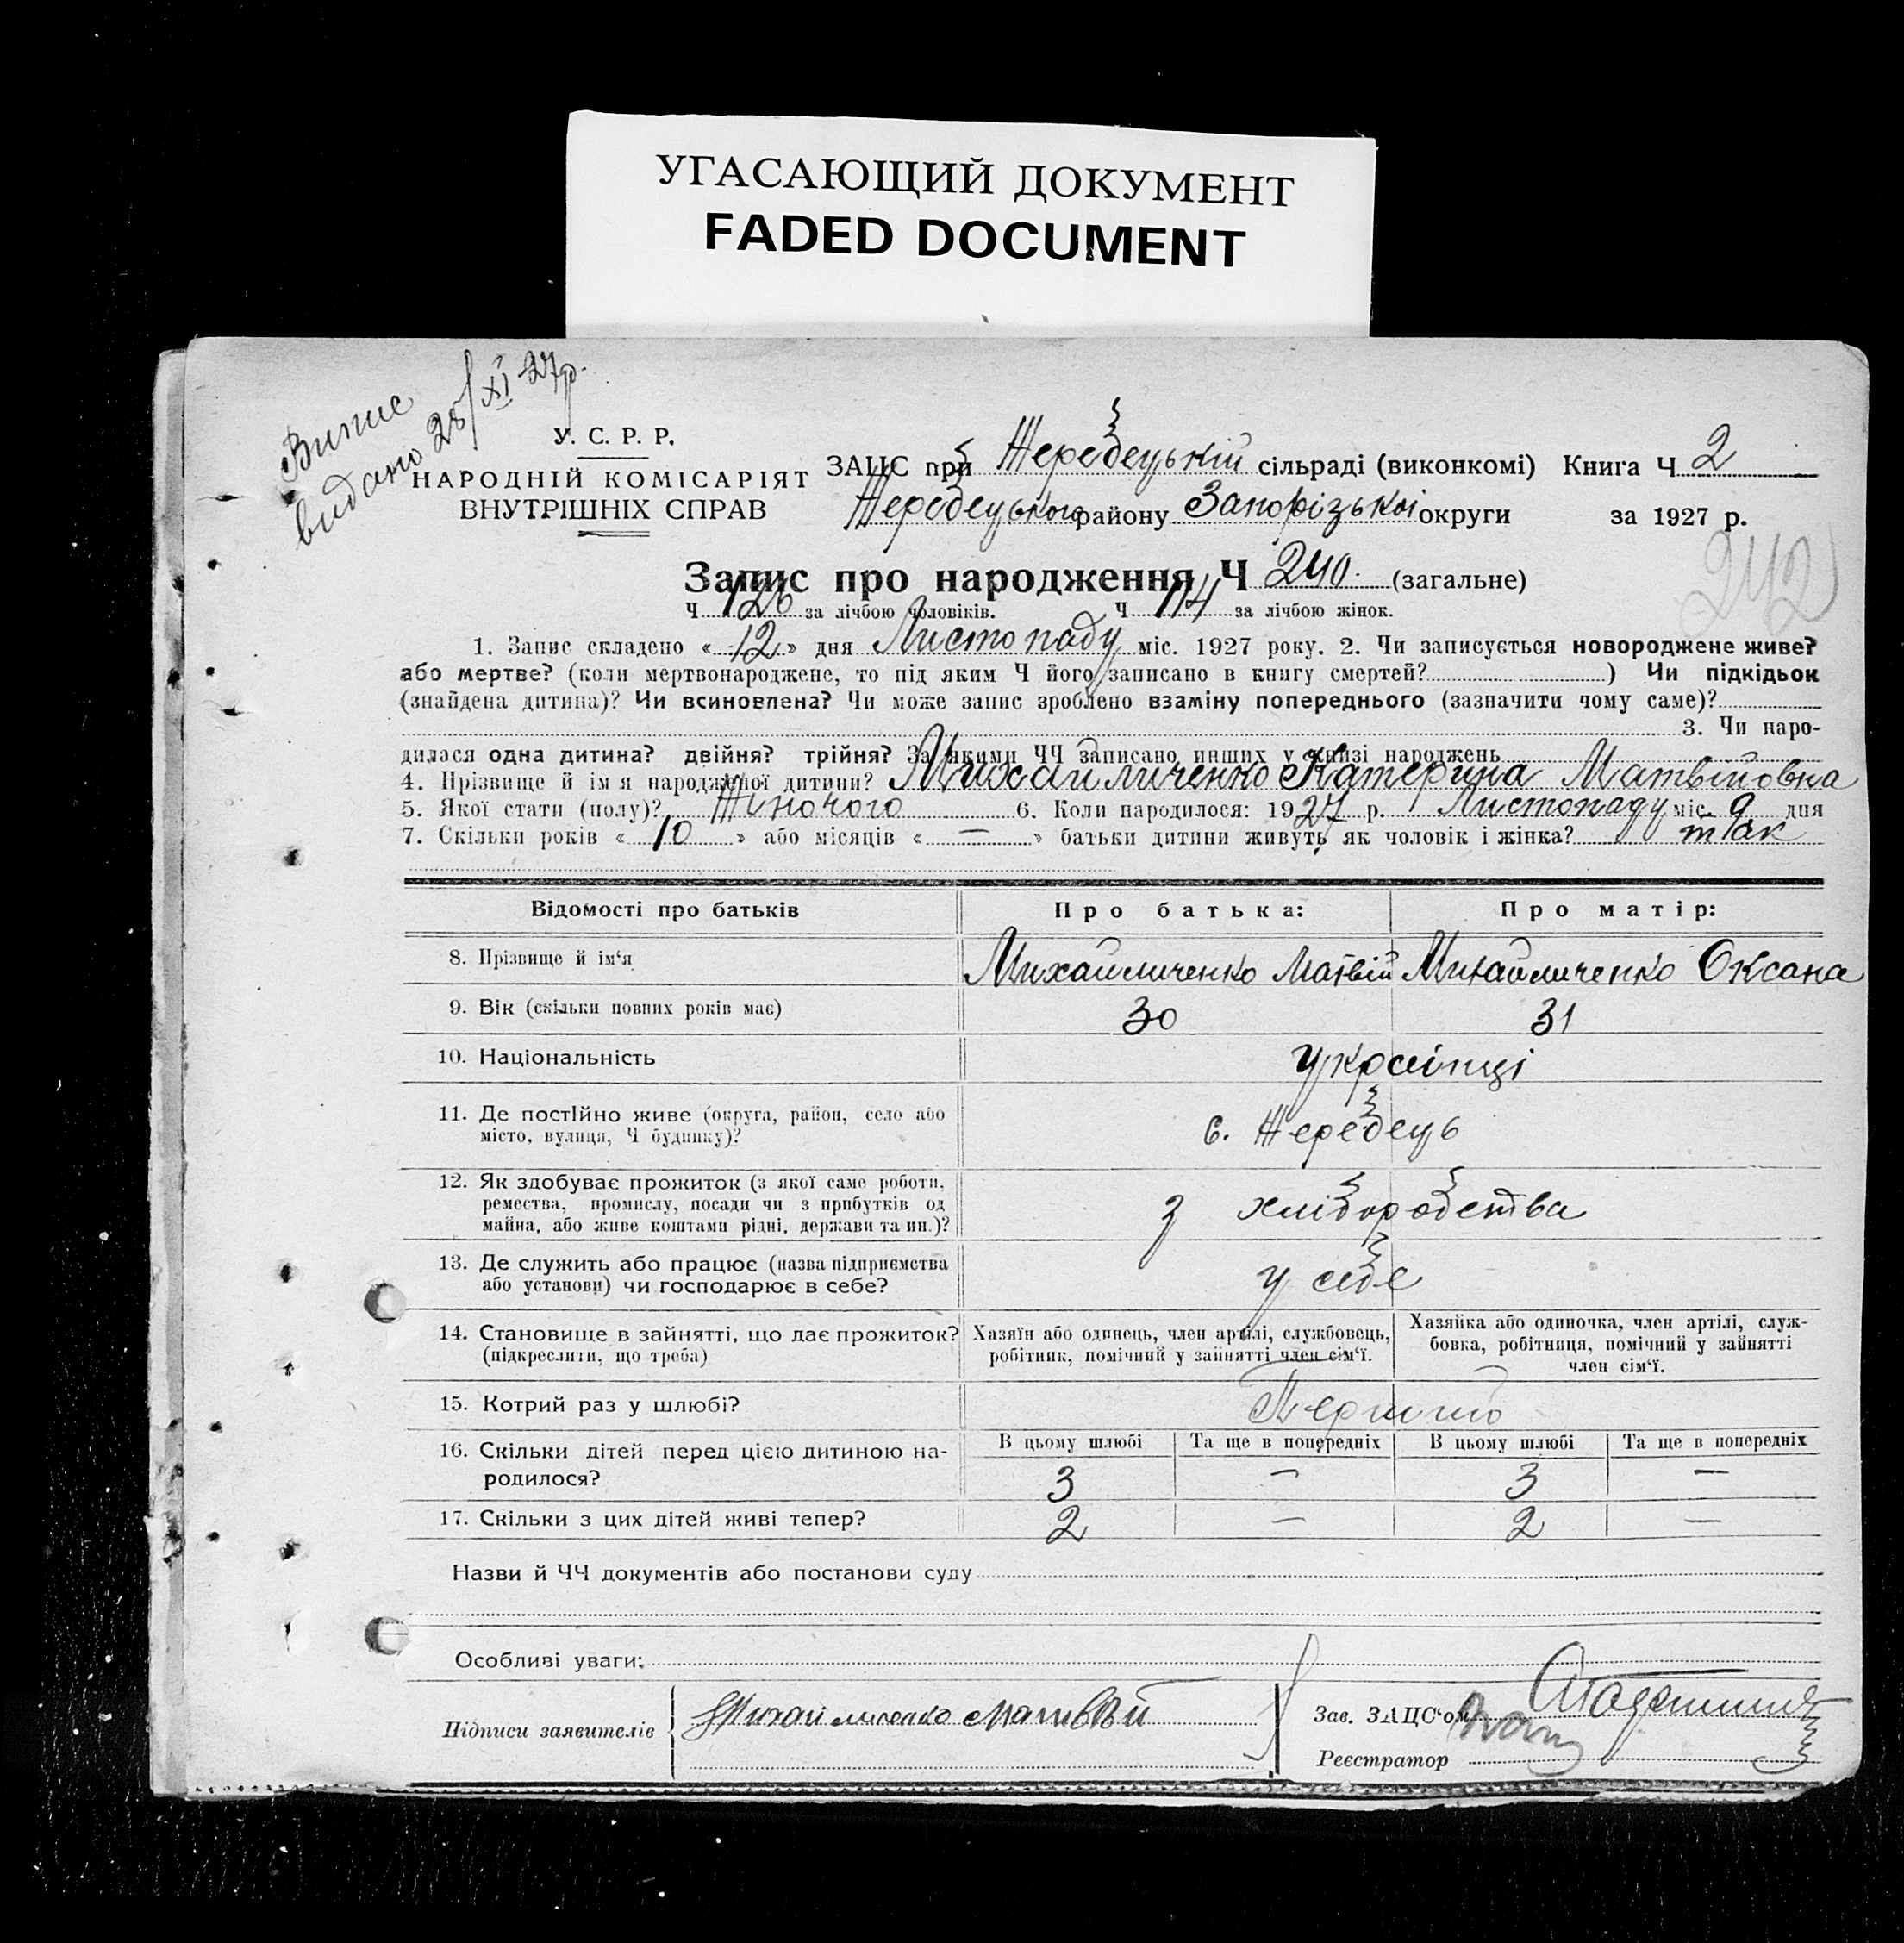 УГАСАЮЩИЙ ДОКУМЕНТ
FADED DOCUMENT
Випис
видано 28/XI 27р.
У. С. Р. Р.
НАРОДНІЙ КОМІСАРІЯТ
ВНУТРІШНІХ СПРАВ
ЗАЦС при Жеребецькій сільраді (виконкомі) Книга Ч 2
Жеребецького району Запорізької округи за 1927 р.
242
Запис про народження Ч 240. (загальне)
Ч 126 за лічбою чоловіків. Ч 114 за лічбою жінок.
1. Запис складено « 12 » дня Листопаду міс. 1927 року. 2. Чи записується новороджене живе?
або мертве? (коли мертвонароджене, то під яким Ч його записано в книгу смертей? ) Чи підкідьок
(знайдена дитина)? Чи всиновлена? Чи може запис зроблено взаміну попереднього (зазначити чому саме)?
3. Чи наро-
дилася одна дитина? двійня? трійня? За якими ЧЧ записано инших у книзі народжень
4. Прізвище й ім я народженої дитини? Михайличенко Катерина Матвійовна
5. Якої стати (полу)? Жіночого 6. Коли народилося: 1927 р. Листопаду міс. 9 дня
7. Скільки років « 10 » або місяців « — » батьки дитини живуть як чоловік і жінка? так
Відомості про батьків Про батька: Про матір:
8. Прізвище й ім‘я Михайличенко Матвій Михайличенко Оксана
9. Вік (скільки повних років має) 30 31
10. Національність українці
11. Де постійно живе (округа, район, село або
місто, вулиця, Ч будинку)? с. Жеребець
12. Як здобуває прожиток (з якої саме роботи,
ремества, промислу, посади чи з прибутків од
майна, або живе коштами рідні, держави та ин.)? з хліборобства
13. Де служить або працює (назва підприємства
або установи) чи господарює в себе? у себе
14. Становище в зайнятті, що дає прожиток?
(підкреслити, що треба)
Хазяїн або одинець, член артілі, службовець,
робітник, помічний у зайнятті член сім‘ї.
Хазяйка або одиночка, член артілі, служ-
бовка, робітниця, помічний у зайнятті
член сім‘ї.
15. Котрий раз у шлюбі?
16. Скільки дітей перед цією дитиною на-
родилося?
В цьому шлюбі Та ще в попередніх В цьому шлюбі Та ще в попередніх
3 — 3 —
17. Скільки з цих дітей живі тепер? 2 — 2 —
Назви й ЧЧ документів або постанови суду
Особливі уваги:
Підписи заявителів Михайличенко Матвій
Зав. ЗАЦС‘ом
Реєстратор